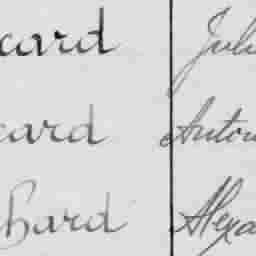 card Juli
card Anton
chard Alexa